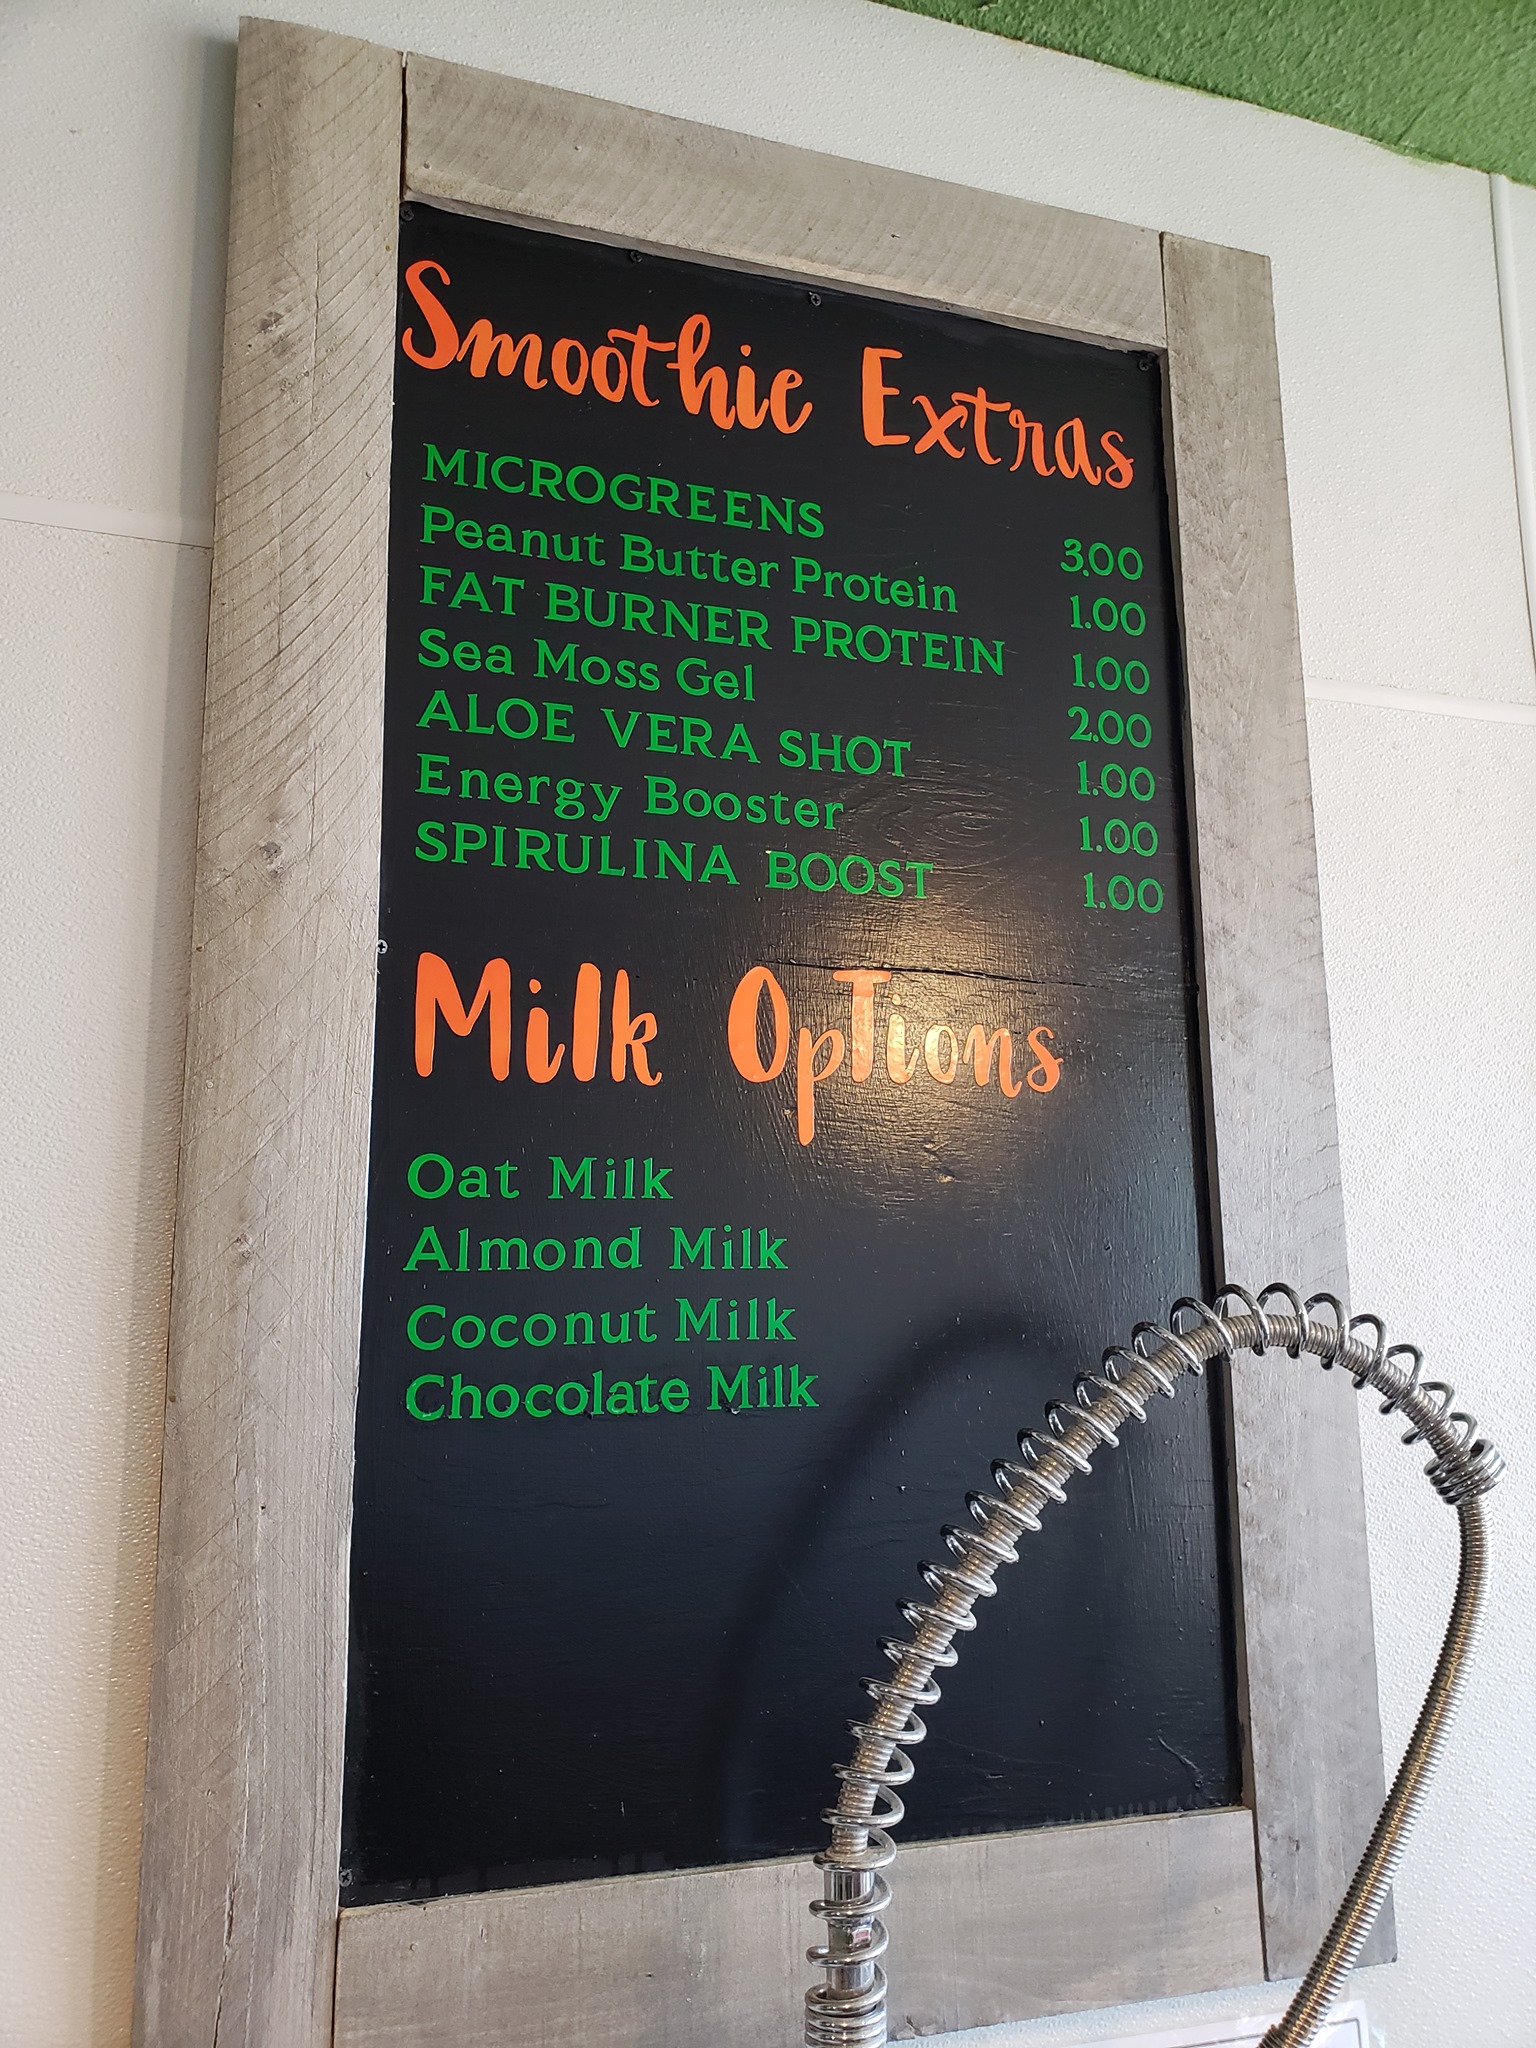 Smoothie Extras
MICROGREENS 3.00
Peanut Butter Protein 1.00
FAT BURNER PROTEIN 1.00
Sea Moss Gel 2.00
ALOE VERA SHOT 1.00
Energy Booster 1.00
SPIRULINA BOOST 1.00
Milk OpTions
Oat Milk
Almond Milk
Coconut Milk
Chocolate Milk